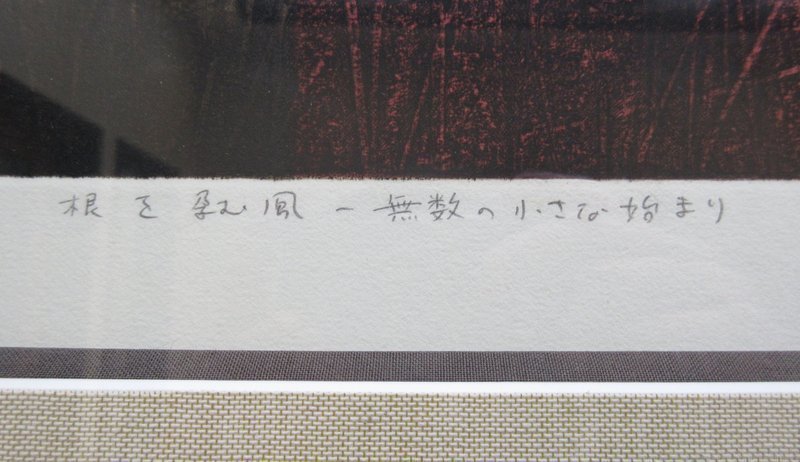 根を孕む風 ー無数の小さな始まり